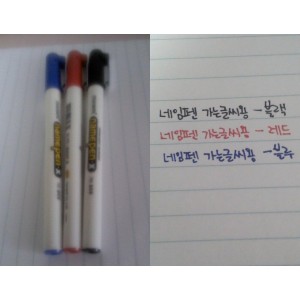 네임펜 가는글씨용 - 블랙
네임펜 가는글씨용 - 레드
네임펜 가는글씨용 - 블루